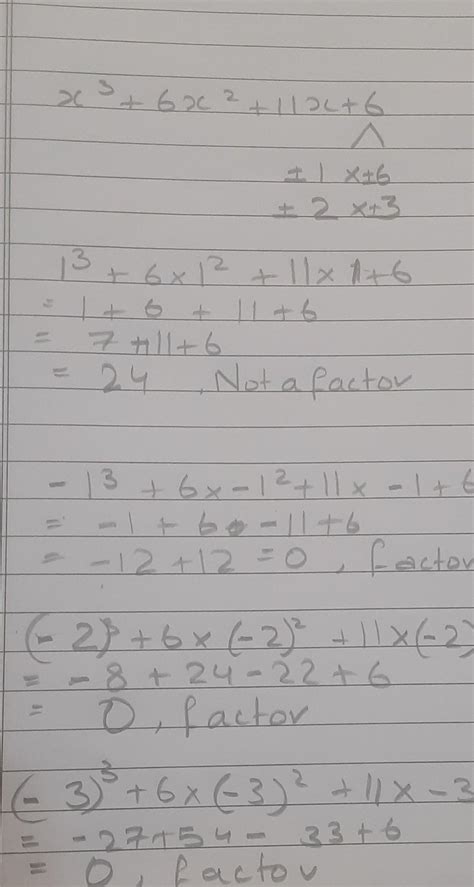 x³ + 6x² + 11x + 6
± 1 x ± 6
± 2 x ± 3
1³ + 6 × 1² + 11 × 1 + 6
= 1 + 6 + 11 + 6
= 7 + 11 + 6
= 24 , Not a factor
- 1³ + 6 × - 1² + 11 × - 1 + 6
= - 1 + 6 - 11 + 6
= - 12 + 12 = 0 , factor
(- 2)³ + 6 × (-2)² + 11 × (-2)
= - 8 + 24 - 22 + 6
= 0 , factor
(- 3)³ + 6 × (-3)² + 11 × - 3
= - 27 + 54 - 33 + 6
= 0 , factor